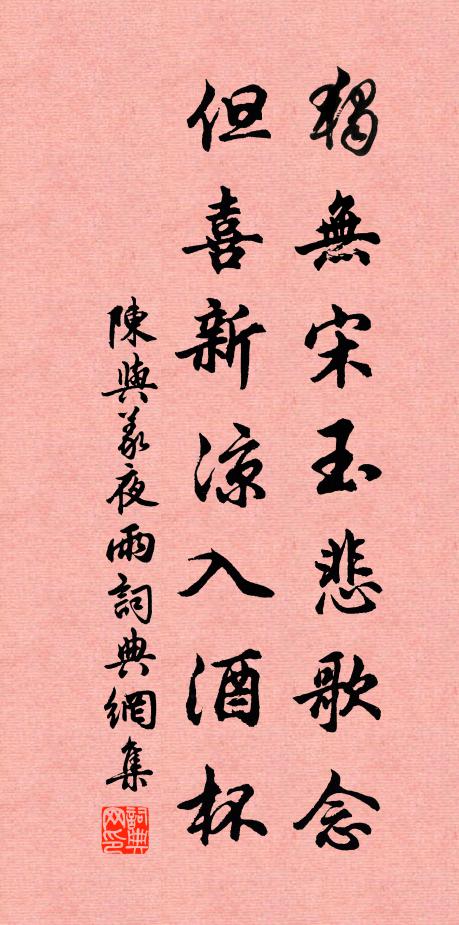 獨無宋玉悲歌念
但喜新涼入酒杯
陳與義夜雨詞典網集
詞典网印